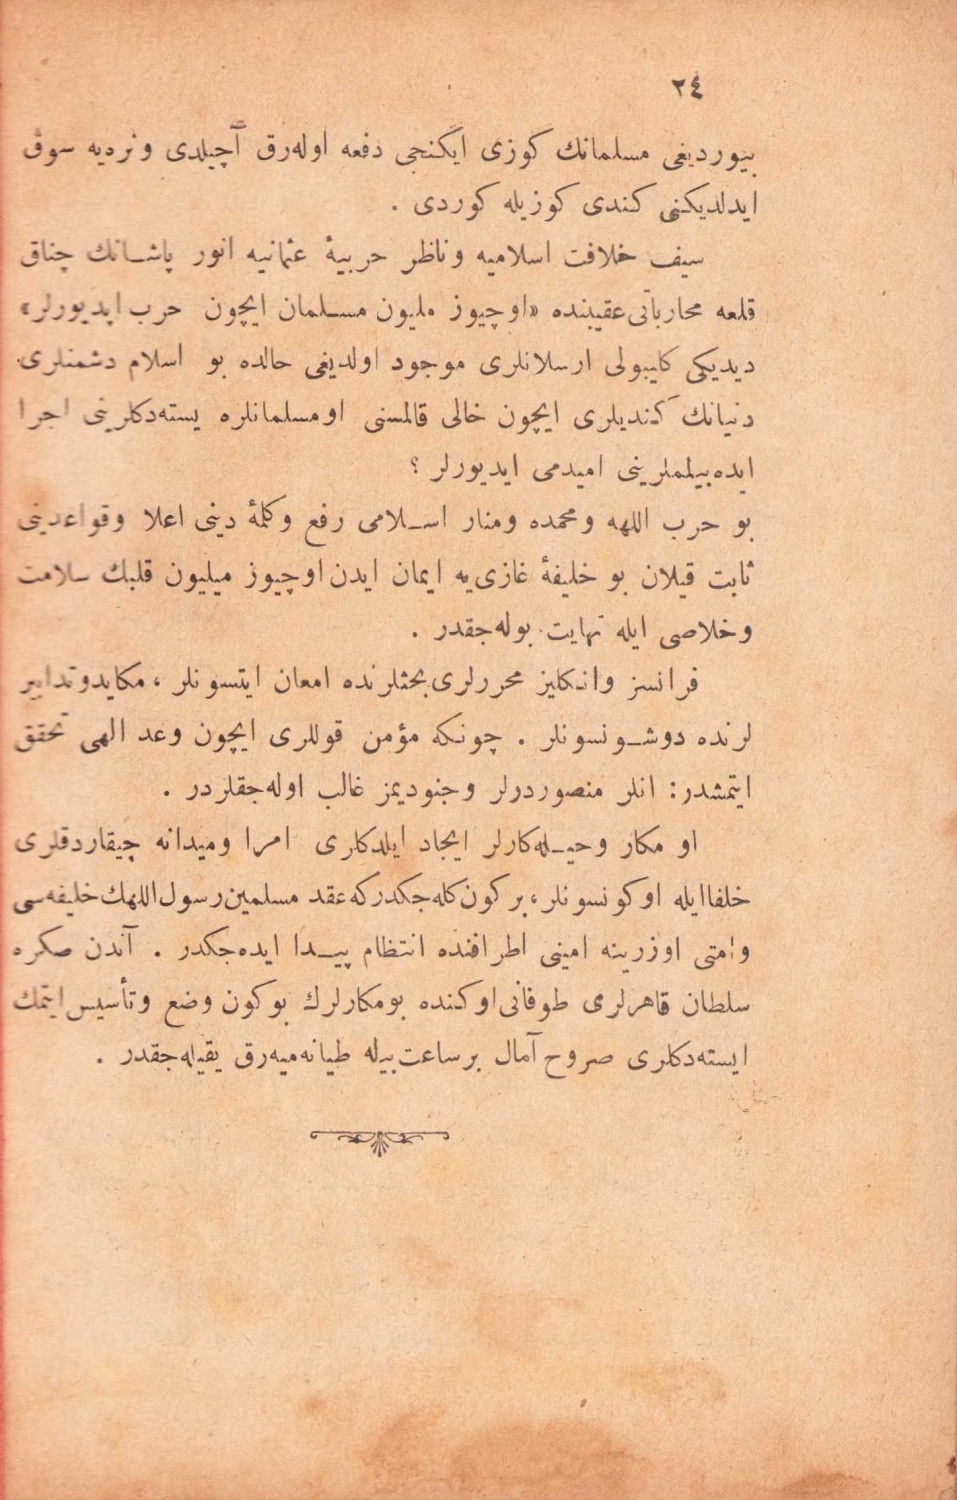 ٢٤
بيورديغى مسلمانك كوزى ايكنجى دفعه اوله‌رق آچيلدى ونرديه سوق
ايدلديكنى كندى كوزيله كوردى .
سيف خلافت اسلاميه وناظر حربيۀ عثمانيه انور پاشانك چناق
قلعه محارباتى عقيبنده «اوچيوز مليون مسلمان ايچون حرب ايديورلر»
ديديكى كليبولى ارسلانلرى موجود اولديغى حالده بو اسلام دشمنلرى
دنيانك كنديلرى ايچون خالى قالمسنى اومسلمانلره يسته‌دكلرينى اجرا
ايده‌بيلملرينى اميدمى ايديورلر ؟
بو حرب اللهه ومحمده ومنار اسلامى رفع وكلمۀ دينى اعلا وقواعدينى
ثابت قيلان بو خليفۀ غازى‌يه ايمان ايدن اوچيوز ميليون قلبك سلامت
وخلاصى ايله نهايت بوله‌جقدر .
فرانسز وانكليز محررلرى بحثلرنده امعان ايتسونلر ، مكايدوتدابير
لرنده دوشونسونلر . چونكه مؤمن قوللرى ايچون وعد الهى تحقق
ايتمشدر: انلر منصوردرلر وجنوديمز غالب اوله‌جقلردر .
او مكار وحيله‌كارلر ايجاد ايلدكلرى امرا وميدانه چيقاردقلرى
خلفاايله اوكونسونلر، بركون كله‌جكدركه عقد مسلمين رسول‌اللهك خليفه‌سى
وامتى اوزرينه امينى اطرافنده انتظام پيدا ايده‌جكدر . آندن صكره
سلطان قاهرلرى طوفانى اوكنده بومكارلرك بوكون وضع وتأسيس ايتمك
ايسته‌دكلرى صروح آمال برساعت بيله طيانه‌ميه‌رق يقيله‌جقدر .